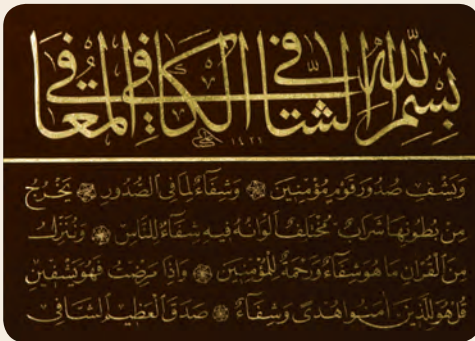 بِسْمِ اللّٰهِ الشَّافِي الْكَافِي الْمُعَافِي
١٤٢٦
وَيَشْفِ صُدُورَ قَوْمٍ مُؤْمِنِينَ ۞ وَشِفَاءٌ لِمَا فِي الصُّدُورِ ۞ يَخْرُجُ
مِنْ بُطُونِهَا شَرَابٌ مُخْتَلِفٌ أَلْوَانُهُ فِيهِ شِفَاءٌ لِلنَّاسِ ۞ وَنُنَزِّلُ
مِنَ الْقُرْآنِ مَا هُوَ شِفَاءٌ وَرَحْمَةٌ لِلْمُؤْمِنِينَ ۞ وَإِذَا مَرِضْتُ فَهُوَ يَشْفِينِ
قُلْ هُوَ لِلَّذِينَ اٰمَنُوا هُدًى وَشِفَاءٌ ۞ صَدَقَ الْعَظِيمُ الشَّافِي